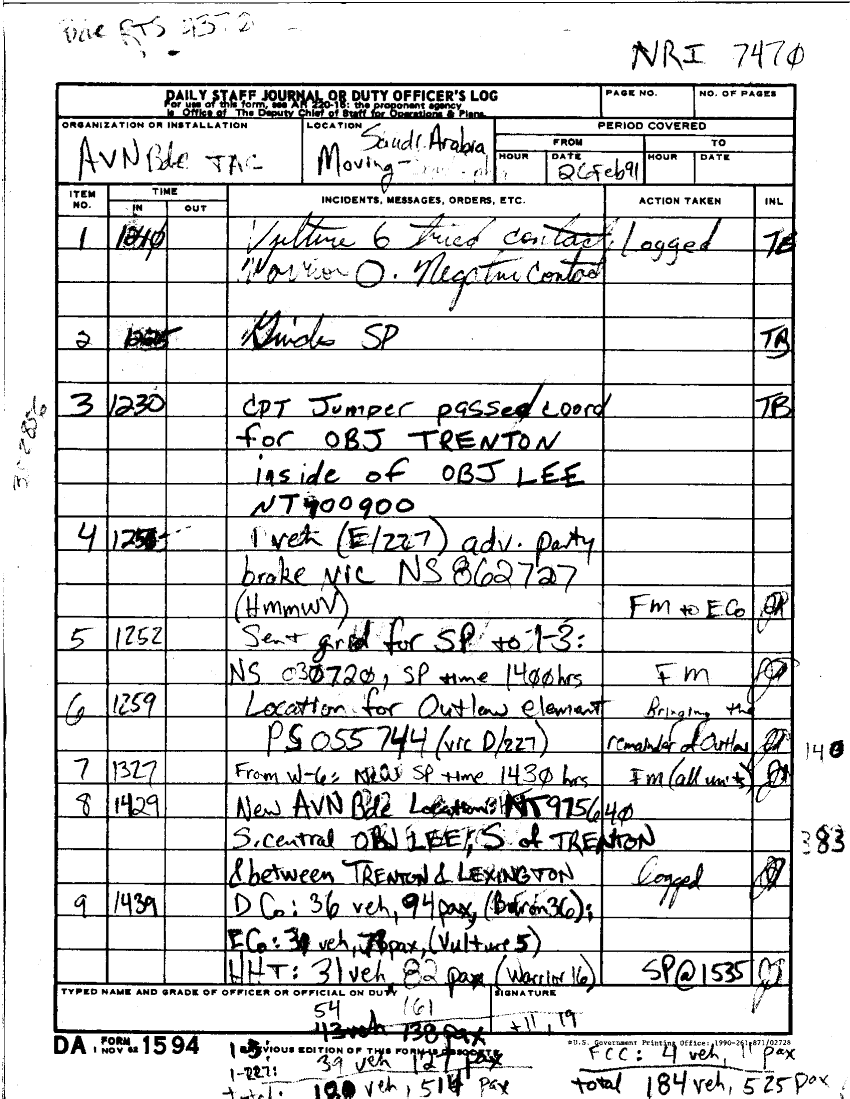 NRI 7470
DAILY STAFF JOURNAL OR DUTY OFFICER'S LOG
For use of this form, see AR 220-15; the proponent agency
is Office of The Deputy Chief of Staff for Operations & Plans.
PAGE NO.
NO. OF PAGES
ORGANIZATION OR INSTALLATION
AVN Bde TAC
LOCATION
Saudi Arabia
Moving-
PERIOD COVERED
FROM
TO
HOUR
DATE
26 Feb 91
HOUR
DATE
ITEM NO.
TIME
IN
OUT
INCIDENTS, MESSAGES, ORDERS, ETC.
ACTION TAKEN
INL
1 1210 Vulture 6 tried contact Logged TB
Warrior O. Negative Contact
2 SP TB
3 1230 CPT Jumper passed coord TB
for OBJ TRENTON
inside of OBJ LEE
NT900900
4 1 veh (E/227) adv. party
brake vic NS 862727
(HmmWV) FM to ECo
5 1252 Sent grid for SP to 1-3:
NS 030720, SP time 1400 hrs FM
6 1259 Location for Outlaw element Bringing the
PS 055744 (vic D/227) remainder of Outlaw
7 1327 From W-6: New SP time 1430 hrs FM (all units)
8 1429 New AVN Bde Location: NT975640
S. central OBJ LEE, S of TRENTON
383
& between TRENTON & LEXINGTON logged
9 1439 D Co: 36 veh, 94 pax,
E Co: veh, pax, (Vulture 5)
HHT: 31 veh, 82 pax (Warrior 16) SP@1535
TYPED NAME AND GRADE OF OFFICER OR OFFICIAL ON DUTY
SIGNATURE
54 161
43 veh 138 pax
+11, 19
DA FORM 1594
1 NOV 62
PREVIOUS EDITION OF THIS FORM IS OBSOLETE.
U.S. Government Printing Office: 1990-261-871/02728
39 veh 127 pax
1-227:
FCC: 4 veh, 11 pax
total: 180 veh, 514 pax
total 184 veh, 525 pax